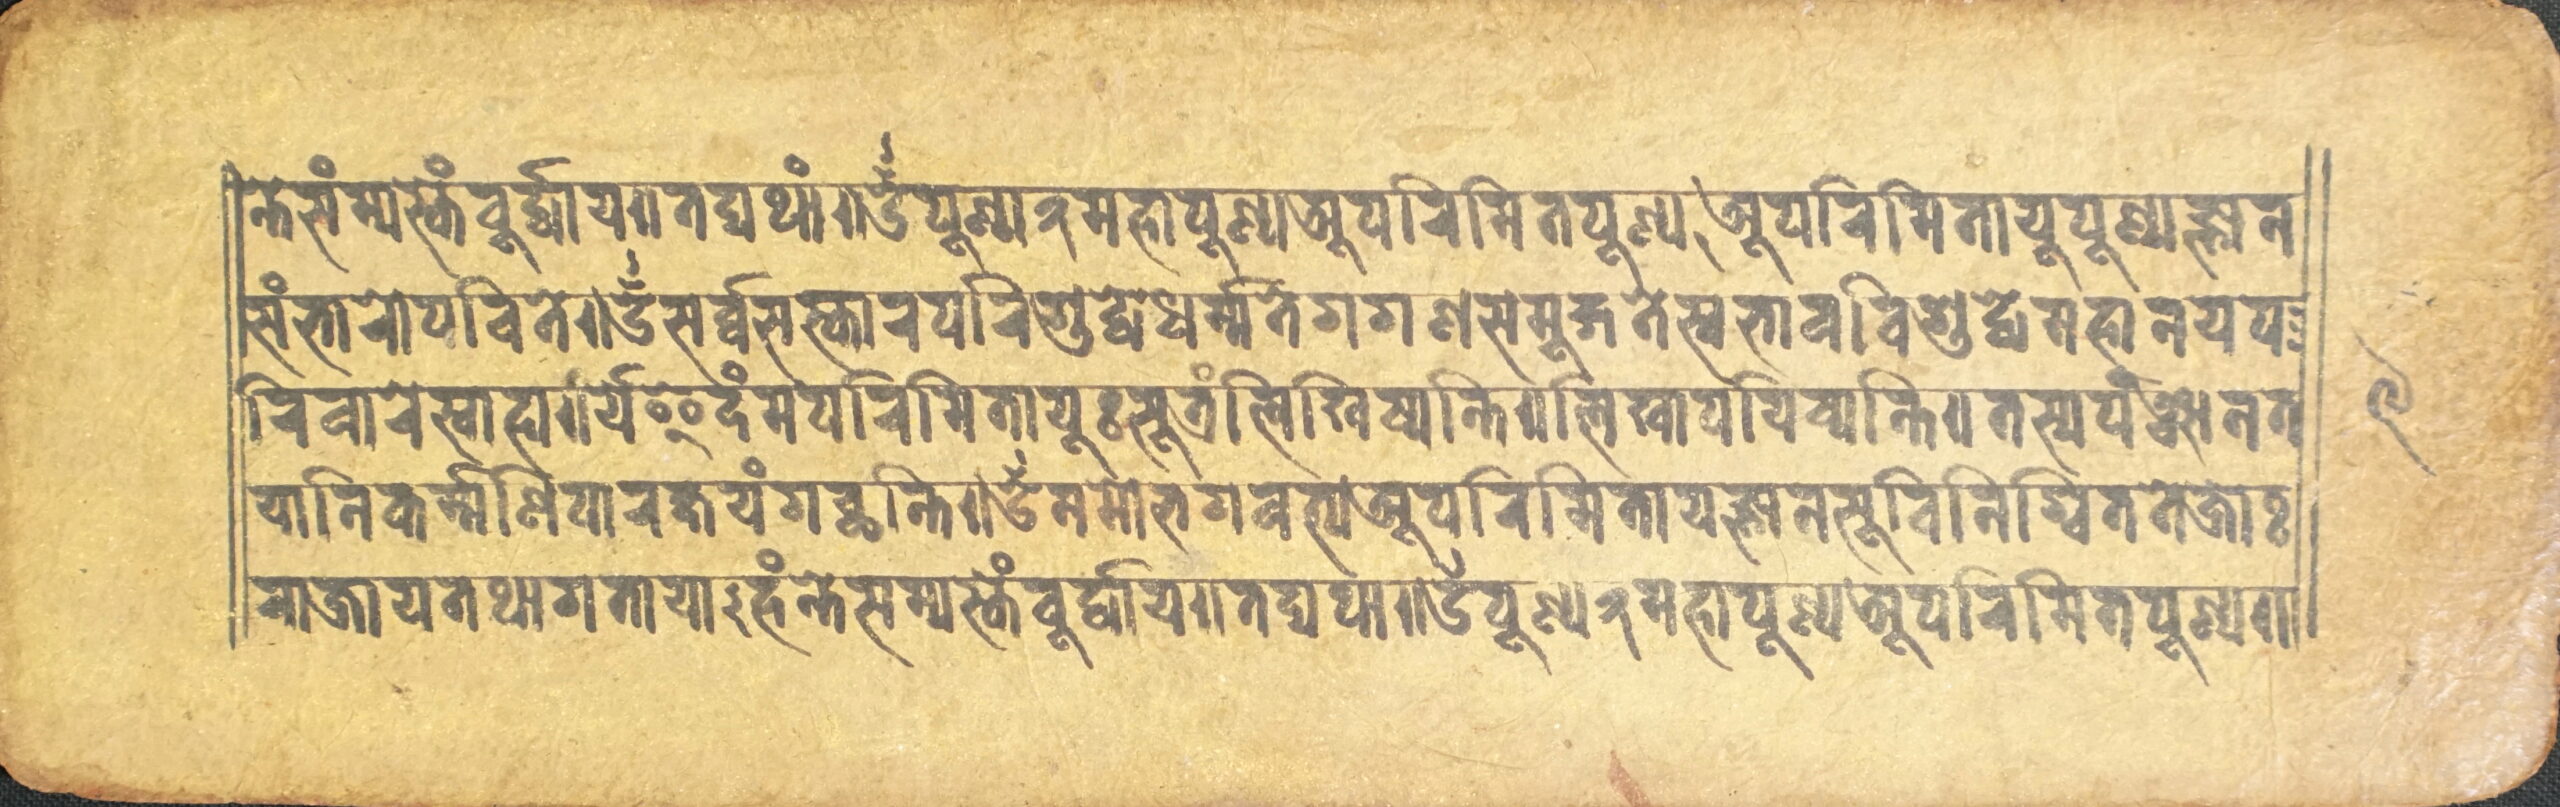 न्तेसंम्यस्कंवूर्द्धाय॥तद्यथां॥ॐपूण्या२महापूण्याअपरिमितपूण्य,अपरिमितायूपूण्याज्ञान
संभारोपचिते॥ॐसर्व्वसस्कारपरिशुद्धेधर्म्मतेगगणसमूद्गतेस्वभावविशुद्धेमहानयप
रिवारेस्वाहा॥र्येइदंमपरिमितायूःसूत्रंलिखिष्यन्ति॥लिखापयिष्यन्ति॥तस्यपंञ्चानत
यानिकर्म्मणिपारक्षयंगच्छन्ति॥ॐनमोभगवत्यअपरिमितायज्ञानसूविनिश्चिततेजोः
राजायतथागतायाऽहंन्तेसम्यस्कंवूर्द्धाय॥तद्यथा॥ॐपूण्य२महापूण्यअपरिमितपूण्य॥
९